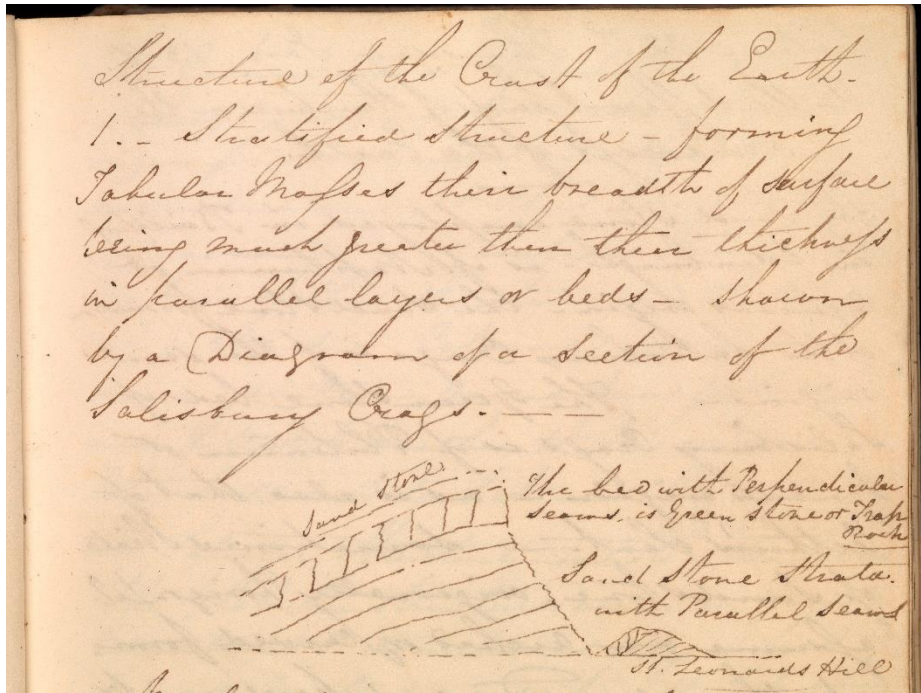 Structure of the Crust of the Earth.
1. - Stratified Structure - forming
Tabular Masses their breadth of surface
being much greater than their thickness
in parallel layers or beds - shown
by a Diagram of a section of the
Salisbury Crags. - -
Sand Stone
The bed with Perpendicular
seams, is Green Stone or Trap
Rock
Sand Stone Strata.
with Parallel Seams
St. Leonards Hill